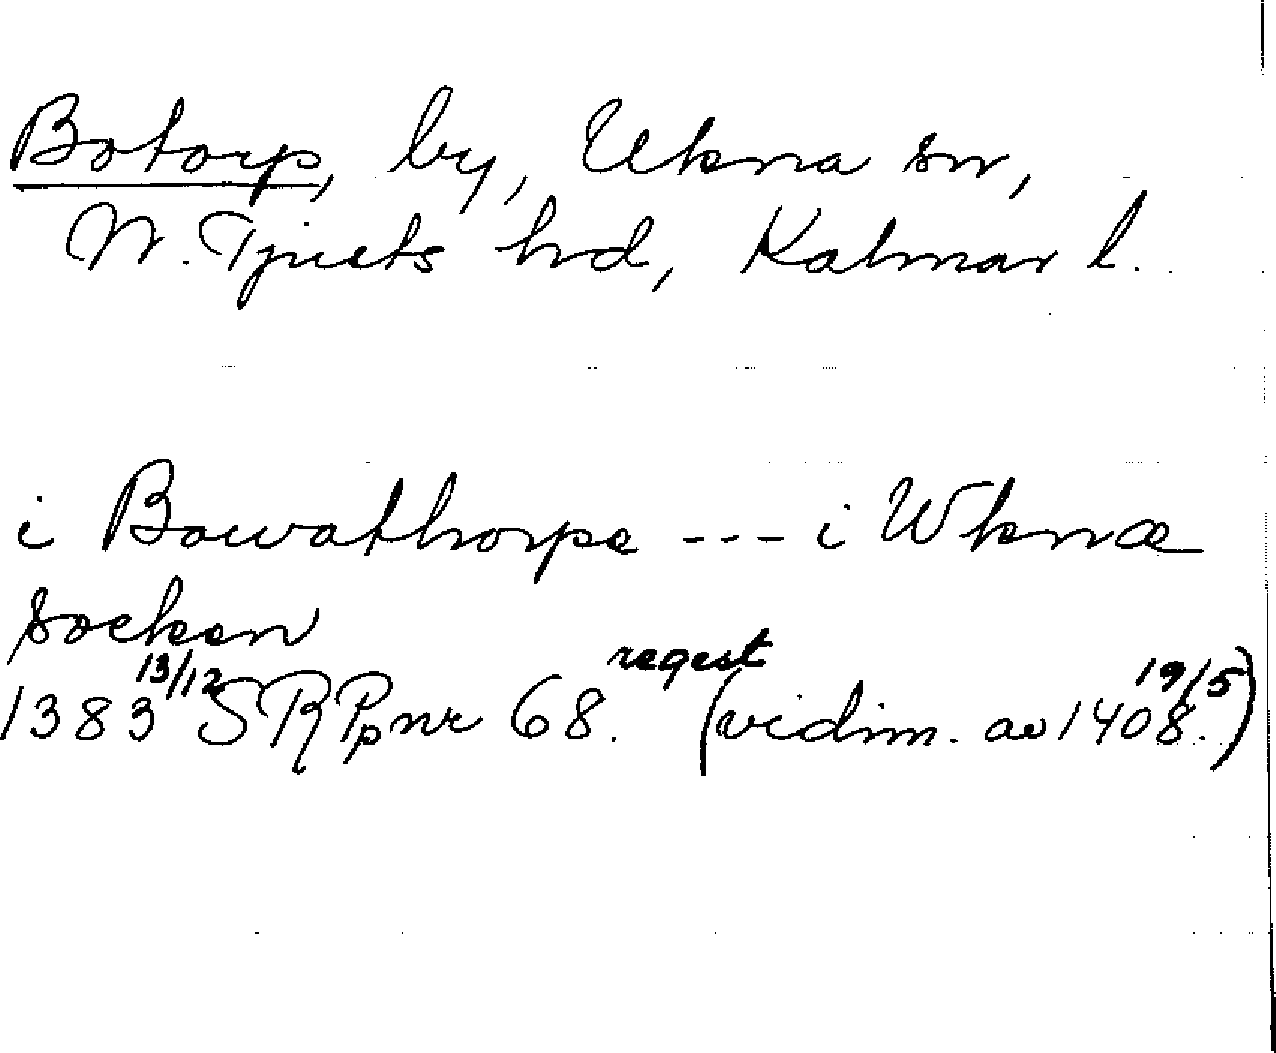 Botorp, by, Ukna sn,
N. Tjusts hd, Kalmar l.
i Bowathorpe --- i Wknæ
socken
1383 13/12 SRPp nr 68. regest (vidim. av 1408 19/5.)